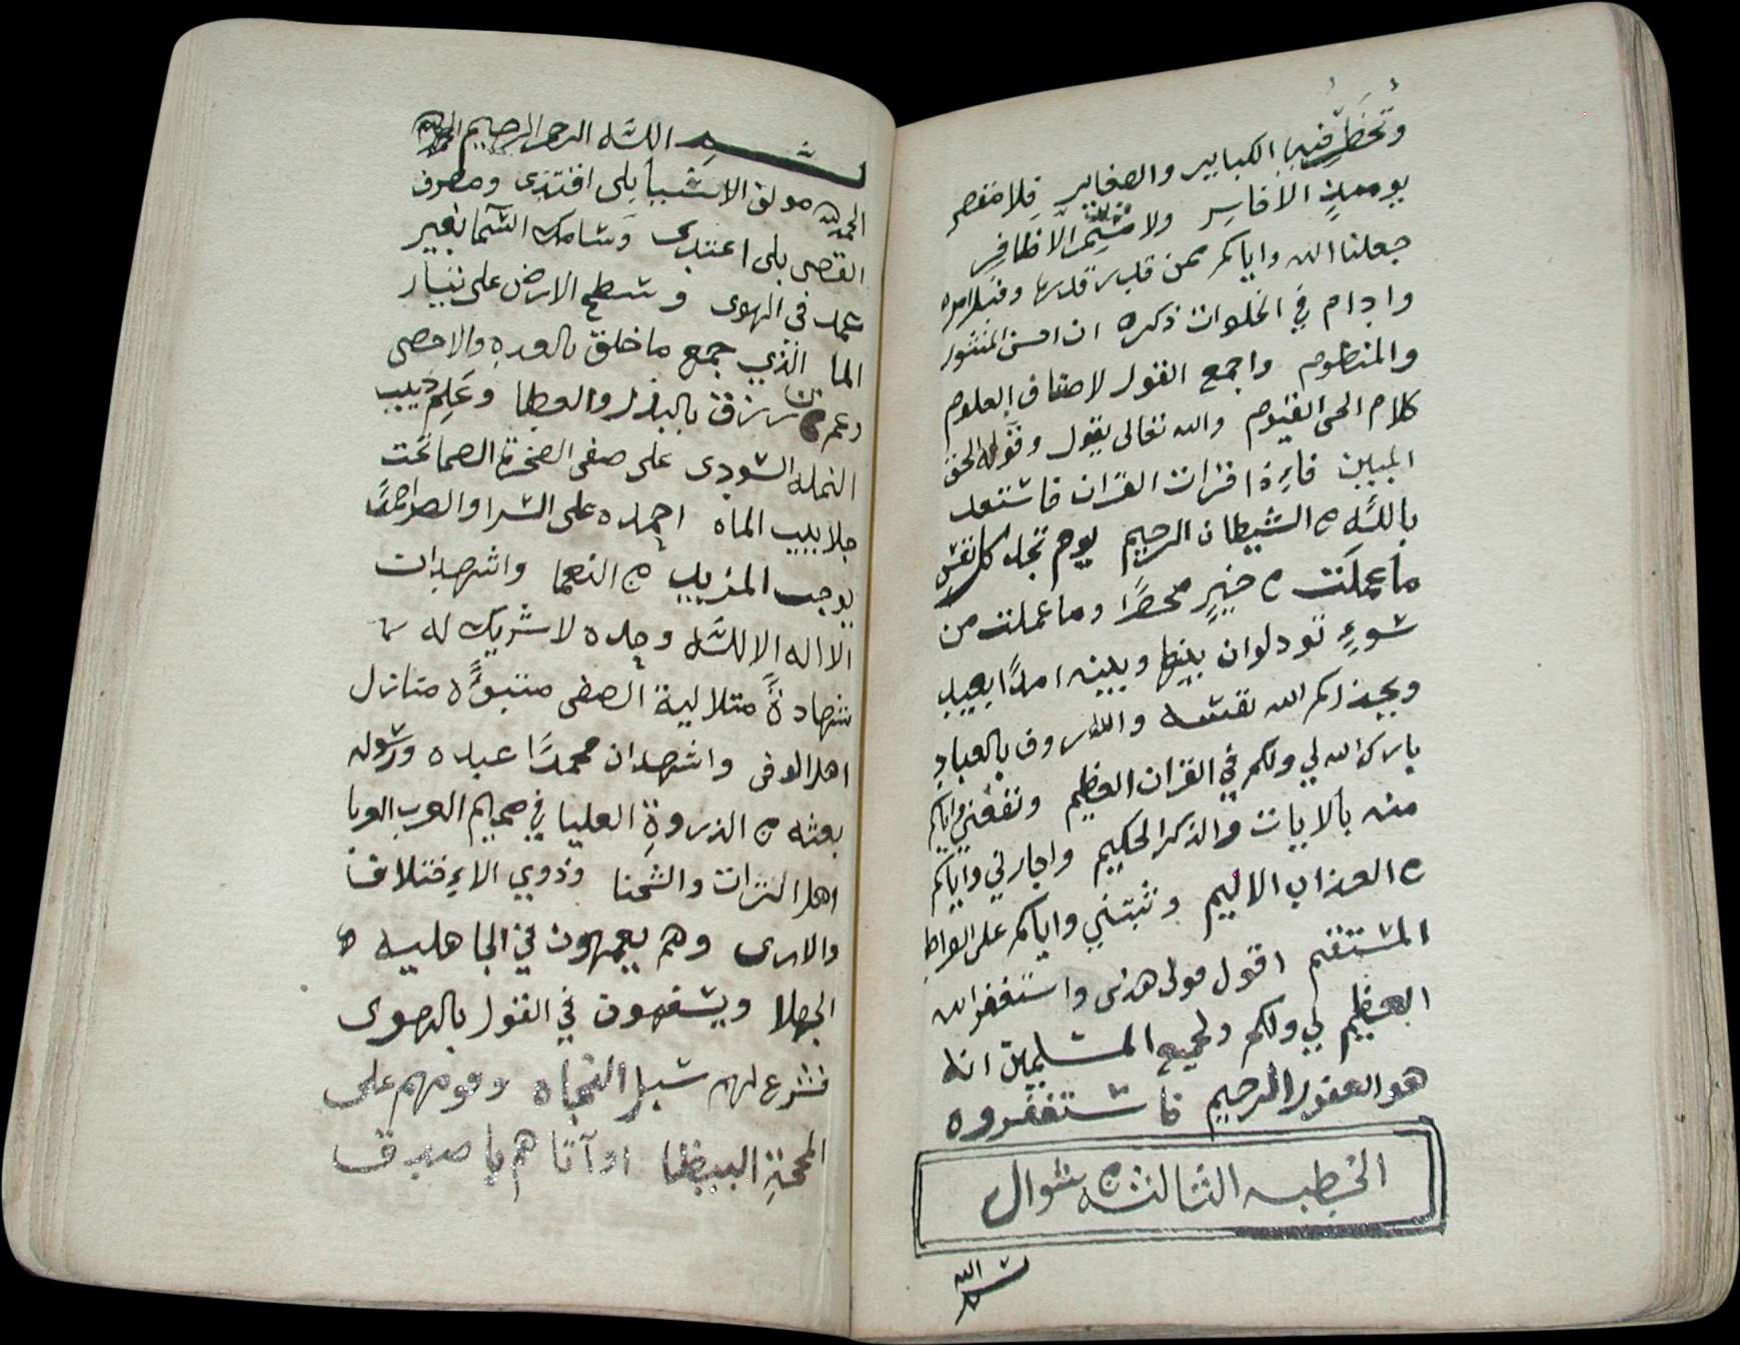 وتحضر فيه الكباير والصغاير فلا مفصر
يوميذٍ الافاسِر ولا مثمر الاظافِر
جعلنا الله واياكم ممن قدر قدرها وفبل امره
وادام في الخلوات ذكره ان احسن المنثور
والمنظوم واجمع القول لاصناف العلوم
كلام الحي القيوم والله تعالى يقول وقوله الحق
المبين فاءِذا قرات القران فاستعد
بالله من الشيطان الرجيم يوم تجد كل نفسٍ
ما عملت من خيرٍ محضرًا وما عملت من
سوءٍ تود لوان بينها وبينه امدًا بعيد
ويحذركم الله نفسه والله روف بالعبادِ
بارك الله لي ولكم في القران العظيم ونفعني واياكم
منه بالايات والذكر الحكيم واجارني واياكم
من العذاب الاليم وثبتني واياكم على الصراط
المستقيم اقول قولى هذى واستغفر الله
العظيم لي ولكم ولجميع المسلمين انه
هو الغفور الرحيم فاستغفروه
الخطبه الثالثه من شوال
بسم الله
بسم الله الرحمن الرحيم
الحمد لله مولف الاشيا بلى افتدى ومصرف
القضى بلى اعتدى وسامك السما بغير
عمد في الهوى وسطح الارض على تيار
الما الذي جمع ما خلق بالعدهِ والاحصى
وعم من رزق بالبذل والعطا وعَلِم دبيب
النمله السودى على صفى الصخرة الصما تحت
جلابيب الماه احمده على السرا والضرا حمدًا
يوجب المزيد من النعما واشهد ان
لا اله الا الله وحده لا شريك له
شهادةً متلالية الضفى متبوةً منازل
اهل الوفى واشهد ان محمدًا عبده ورسوله
بعثه من الذروةِ العليا في صميم العرب العربا
اهل الترات والشحنا وذوي الاءِختلاف
والارى وهم يعمهون في الجاهليه
الجهلا ويسفهون في القول بالهوى
فشرع لهم سبل النجاه وقومهم على
المحجةِ البيظا اد آتاهم باصدق